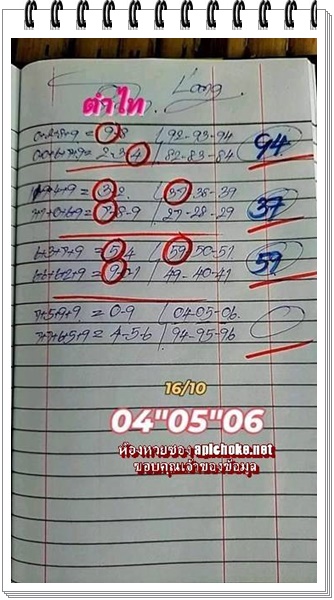 Lang
ตำไท
= 9-8 / 92-93-94 94
= 2-3-4 / 82-83-84
= 3-2 / 37-38-39 37
= 7-8-9 / 27-28-29
6+3+7+9 = 5-4 / 59-50-51 59
6+6+2+9 = 9-1 / 49-40-41
7+5+9+9 = 0-9 / 04-05-06
7+7+6+5+9 = 4-5-6 / 94-95-96
16/10
04"05"06
ห้องหวยซอง apichoke.net
ขอบคุณเจ้าของข้อมูล